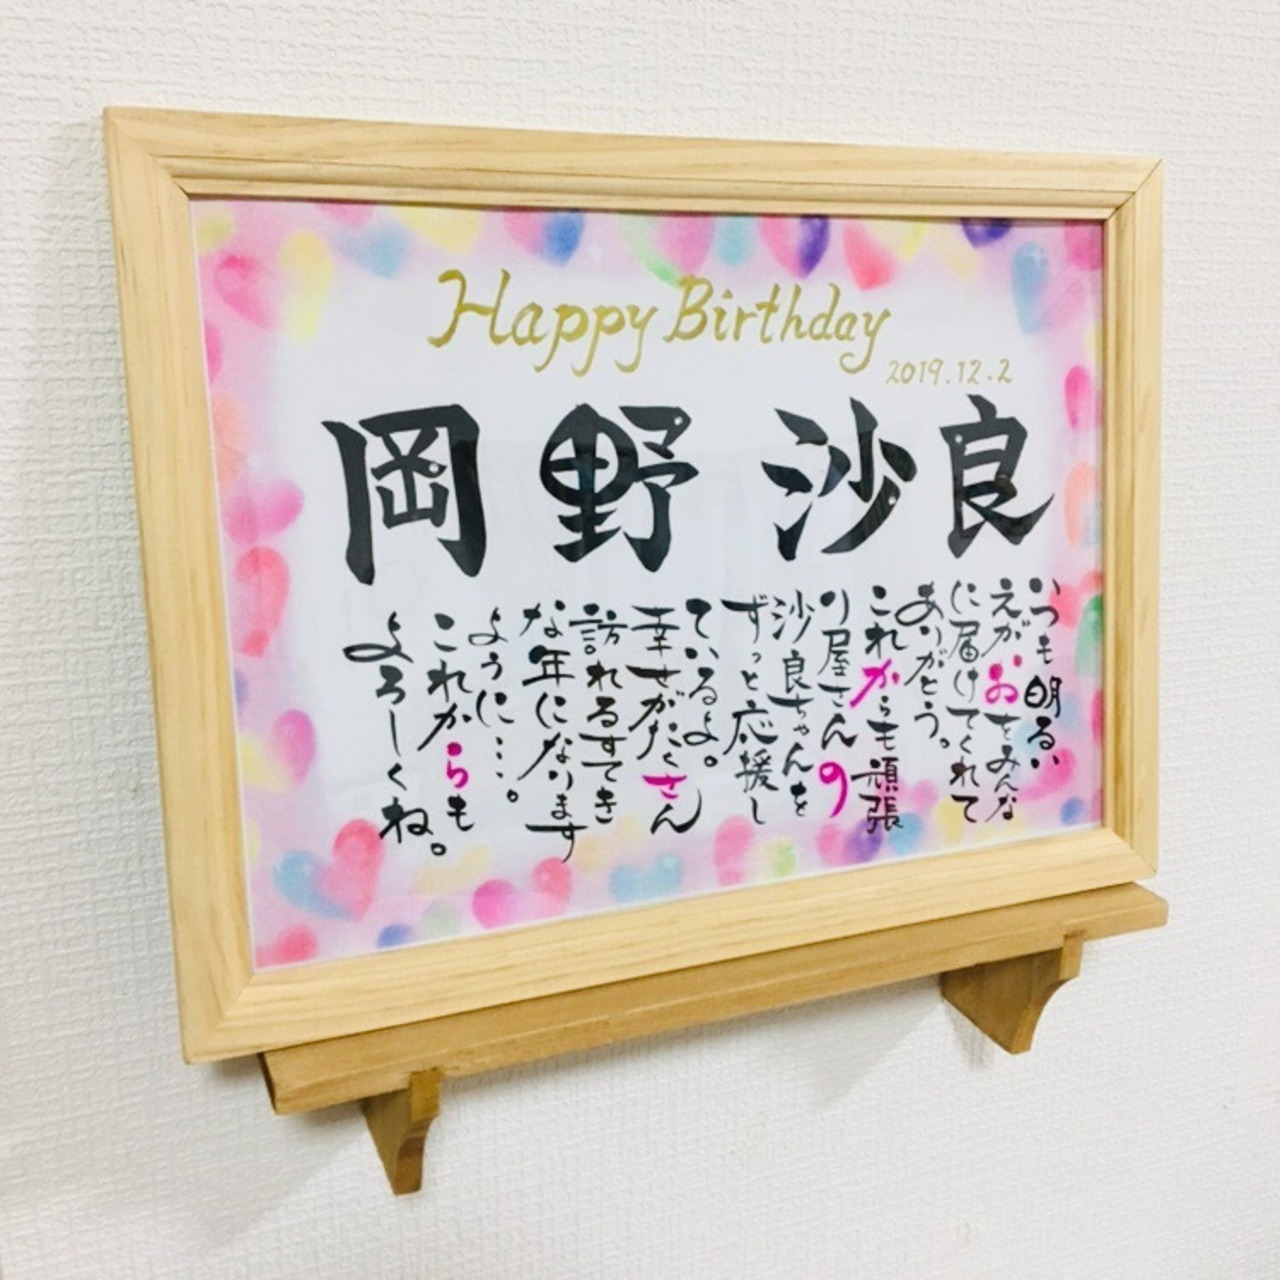 Happy Birthday
2019.12.2
岡野 沙良
いつも明るい
えがおをみんな
に届けてくれて
ありがとう。
これからも頑張
り屋さんの
沙良ちゃんを
ずっと応援し
ているよ。
幸せがたくさん
訪れるすてき
な年になります
ように…。
これからも
よろしくね。